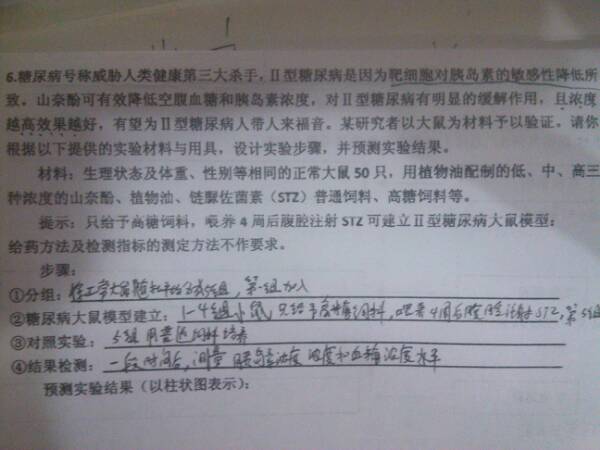 6.糖尿病号称威胁人类健康第三大杀手，Ⅱ型糖尿病是因为靶细胞对胰岛素的敏感性降低所
致。山奈酚可有效降低空腹血糖和胰岛素浓度，对Ⅱ型糖尿病有明显的缓解作用，且浓度
越高效果越好，有望为Ⅱ型糖尿病人带人来福音。某研究者以大鼠为材料予以验证。请你
根据以下提供的实验材料与用具，设计实验步骤，并预测实验结果。
材料：生理状态及体重、性别等相同的正常大鼠50只，用植物油配制的低、中、高三
种浓度的山奈酚、植物油、链脲佐菌素（STZ）普通饲料、高糖饲料等。
提示：只给于高糖饲料，喂养4周后腹腔注射STZ可建立Ⅱ型糖尿病大鼠模型；
给药方法及检测指标的测定方法不作要求。
步骤：
①分组：将正常大鼠随机平均分成5组，第一组加入
②糖尿病大鼠模型建立：1-4组小鼠只给予高糖饲料，喂养4周后腹腔注射STZ，第5组
③对照实验：5组用普通饲料培养
④结果检测：一段时间后，测量胰岛素浓度和血糖浓度水平
预测实验结果（以柱状图表示）：